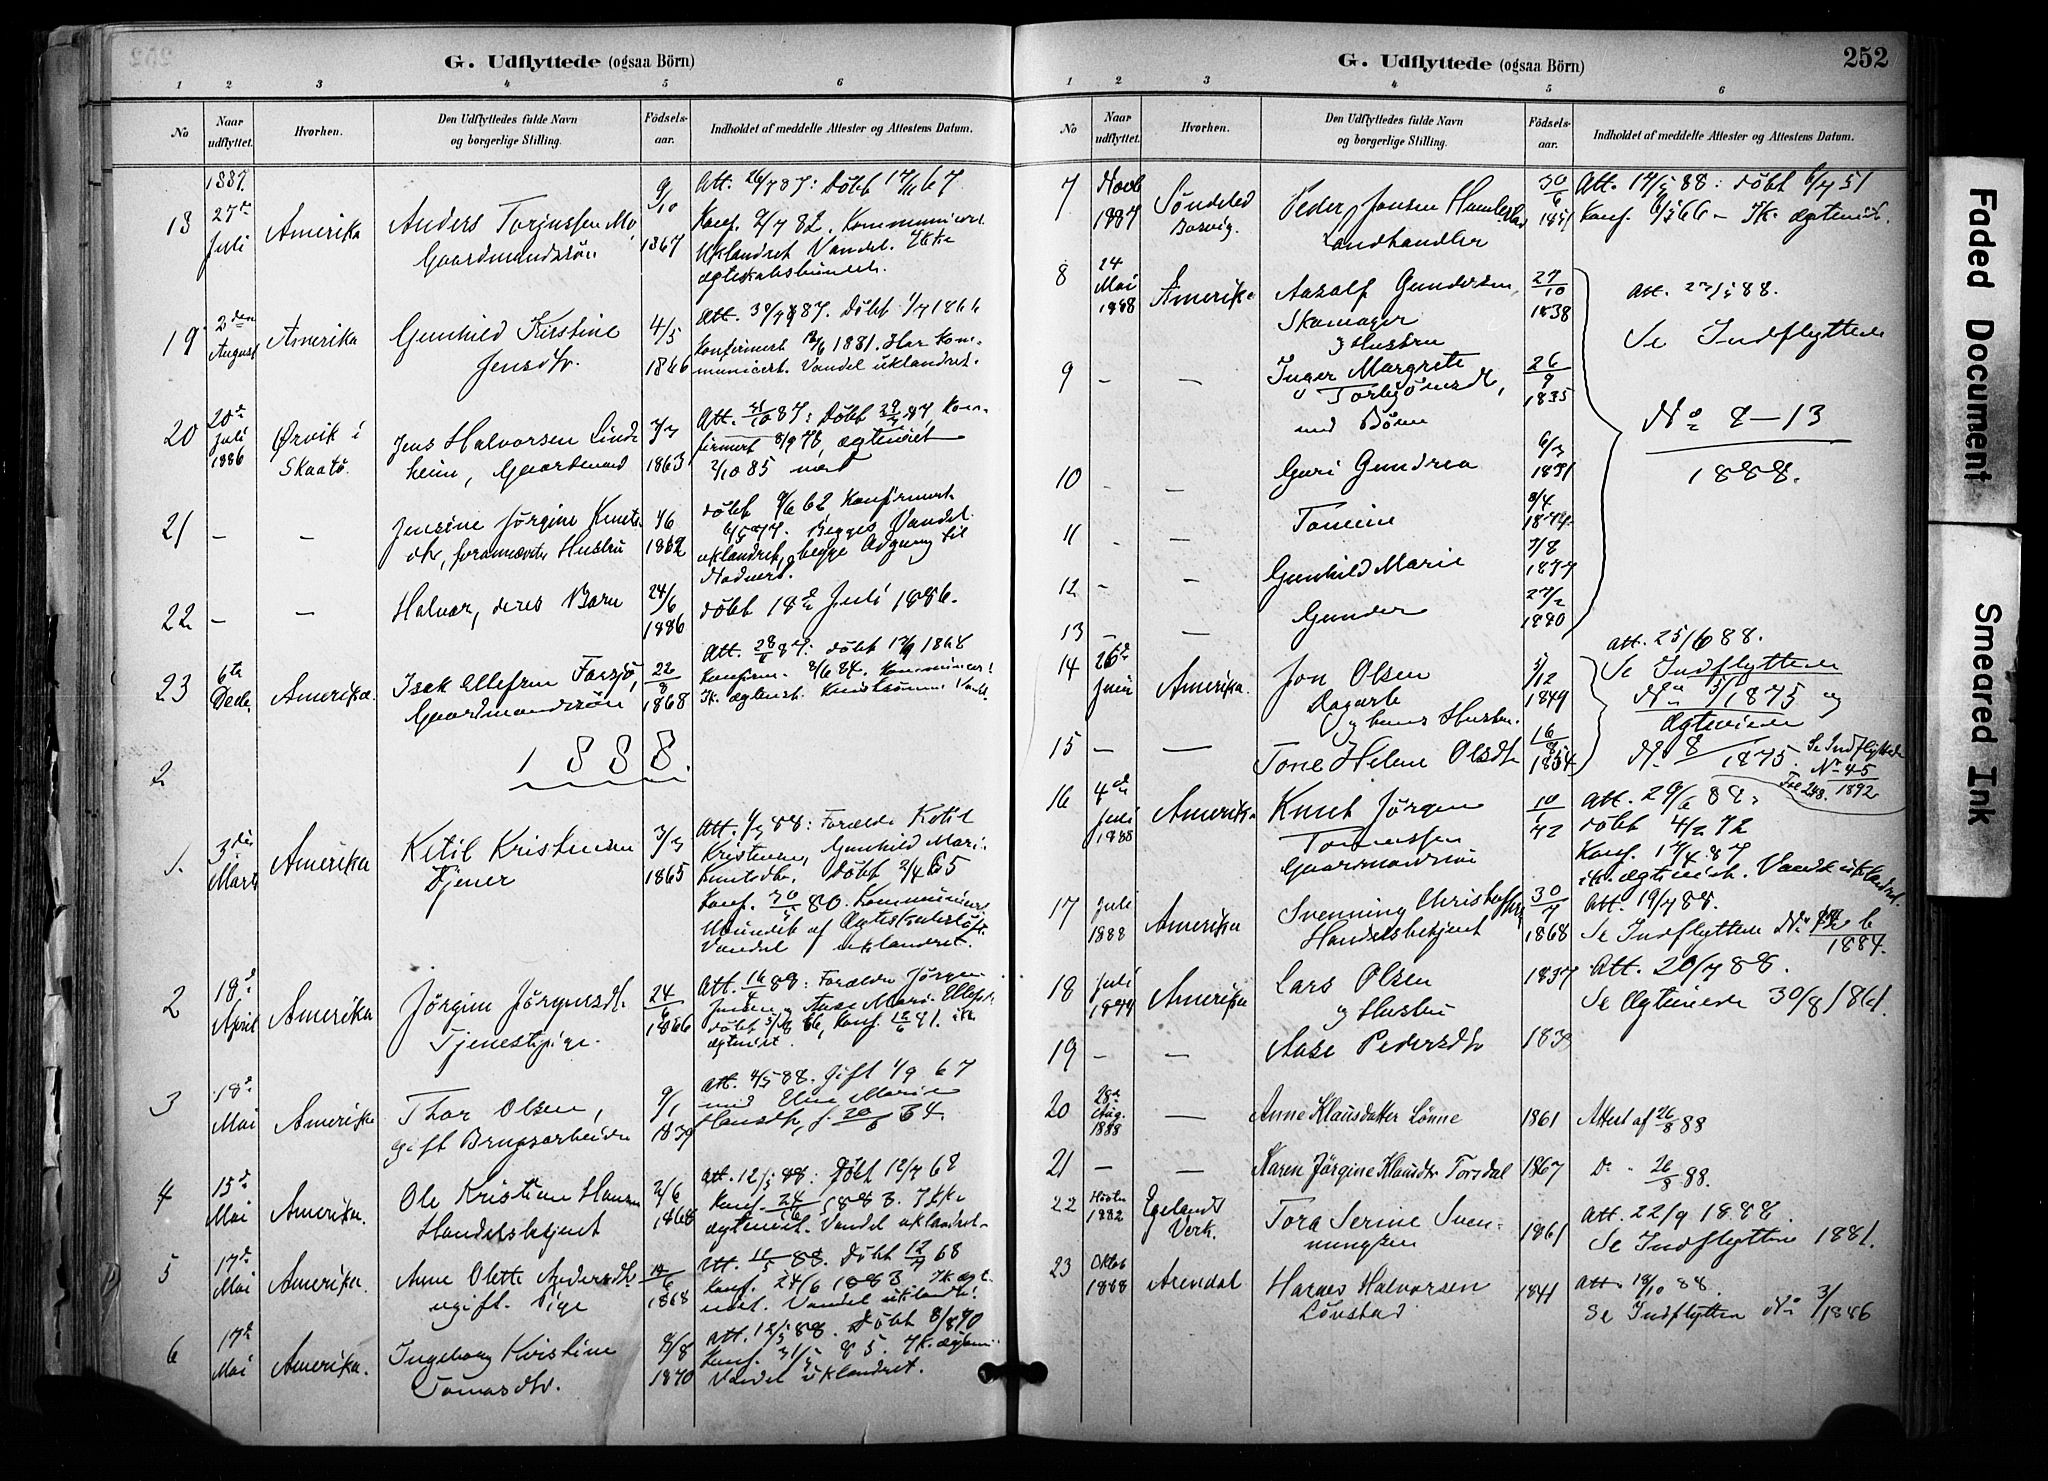 G. Udflyttede (ogsaa Börn)
1 2 3 4 5 6
No
Naar udflyttet.
Hvorhen.
Den Udflyttedes fulde Navn og borgerlige Stilling.
Födsels-aar.
Indholdet af meddelte Attester og Attestens Datum.
1887.
18 27de Juli Amerika Anders Torjussen Mo 9/10 1867 Att. 26/7 87: Döbt 17/11 67
Gaardmandssön
Konf. 9/7 82. Kommuniceret
Uklandret Vandel. Ikke
ægteskabsbunden.
19 2den August Amerika Gunhild Kirstine 4/5 1866 Att. 30/7 87. Döbt 1/7 1866
Jensdtr.
Konfirmert 12/6 1881. Har kom-
municert. Vandel uklandret.
20 20de Juli 1886 Ørvik i Skaatö. Jens Halvorsen Lind- 7/3 1863
heim, Gaardmand
firmert 8/9 78, ægteviet
2/10 85 med
21 – – Jensine Jörgine Knuts- 4/6 1862 Döbt 9/6 62 Konfirmert
dtr, forannævntes Hustru
Begges Vandel
uklandret, begge Adgang til
Nadveren.
22 – – Halvor, deres Barn 24/6 1886 döbt 18de Juli 1886.
23 6te Decbr. Amerika. Isak Ellefsen Farsjö, 22/8 1868
Gaardmandssön
1888.
2
1. 3die Marts Amerika Ketil Kristensen 3/3 1865 Att. 1/3 88: Forældre Ketil
Tjener
Kristensen, Gunhild Mari
Knutsdtr. Döbt 2/4 65
Konf. 30/5 80. Kommunicert
Ubundet af Ægteskabslöfte
Vandel uklandret.
2 18de April Amerika Jörgine Jörgensdtr. 24/6 1866 Att. 16/4 88: Forældre Jörgen
Tjenestepige.
Jensen og Aase Mari Ellefsdtr.
ægteviet.
3 18de Mai Amerika Thor Olsen, 9/1 1839 Att. 4/5 88. Gift 1/9 67
gift Brugsarbeider
med Else Marie
Hansdtr, f. 20/6 34.
4 15de Mai Amerika. Ole Kristian Hansen 2/6 1868 Att. 12/5 88: Döbt 12/7 68
Handelsbetjent
Konf. 24/6 1883. Ikke
ægteviet. Vandel uklandret.
5 17de Mai Amerika. Anne Olette Andersdtr. 1868 Att. 11/5 88. Döbt 12/7 68
ugift. Pige
Konf. 24/6 1883. Ik. ægte-
viet. Vandel uklandret.
6 17de Mai Amerika. Ingeborg Kristine 8/8 1870 Att. 12/5 88. Döbt
Tomasdtr.
Konf. 31/5 85. Ik. ægtev.
Vandel uklandret.
G. Udflyttede (ogsaa Börn)
252
1 2 3 4 5 6
No
Naar udflyttet.
Hvorhen.
Den Udflyttedes fulde Navn og borgerlige Stilling.
Födsels-aar.
Indholdet af meddelte Attester og Attestens Datum.
7 Novb 1887 Söndeled Peder Jensen 30/6 1851 Att. 17/5 88: döbt 6/7 51
Landhandler
Konf. 6/5 66 – Ik. ægteviet.
8 24 Mai 1888 Amerika Aasolf Gundersen, 27/10 1838 Att. 27/5 88.
Skomager
og Hustru
Se Indflyttede
9 – – Inger Margrete 26/9 1835
Torbjörnsdtr,
med Börn
No 8–13
1888.
10 – – Guri Gundrea 6/3 1871
11 – – Tomine 8/4 1874
12 – – Gunhild Marie 7/8 1877
13 – – Gunder 27/2 1880
14 26de Juni Amerika. Jon Olsen 5/12 1849 Att. 25/6 88.
Dagarb.
og hans Hustru.
Se Indflyttede
No 5/1875 og
Ægteviede
15 – – Tone Helene Olsdtr 16/8 1854 No 8/1875. Se Indflyttede
No 45/1892
Fol 248.
16 4de Juli 1888 Amerika Knut Jörgen 10/1 72 Att. 29/6 88.
Tomassen
Gaardmandssön
döbt 4/2 72
Konf. 17/4 87
ik. ægteviet. Vandel uklandret.
17 Juli 1888 Amerika Svenning Christoffersen 30/7 1868 Att. 19/7 88.
Handelsbetjent
Se Indflyttede No
1884.
18 Juli Amerika Lars Olsen 1837 Att. 20/7 88.
og Hustru
Se Ægteviede 30/8 1861.
19 – – Aase Pedersdtr
20 28de Aug. 1888 – Anne Klausdatter Lönne 1861 Attest af 26/8 88
21 – – Karen Jörgine Klausdtr Torsdal 1867 Do 26/8 88.
22 1882 Egelands Verk. Tora Serine Sven- 1861 Att. 22/9 1888.
ningsen
Se Indflyttede 1881.
23 Oktob 1888 Arendal Halvorsen 1841 Att. 18/10 88.
Lövstad
Se Indflyttede No 3/1886
Faded Document
Smeared Ink